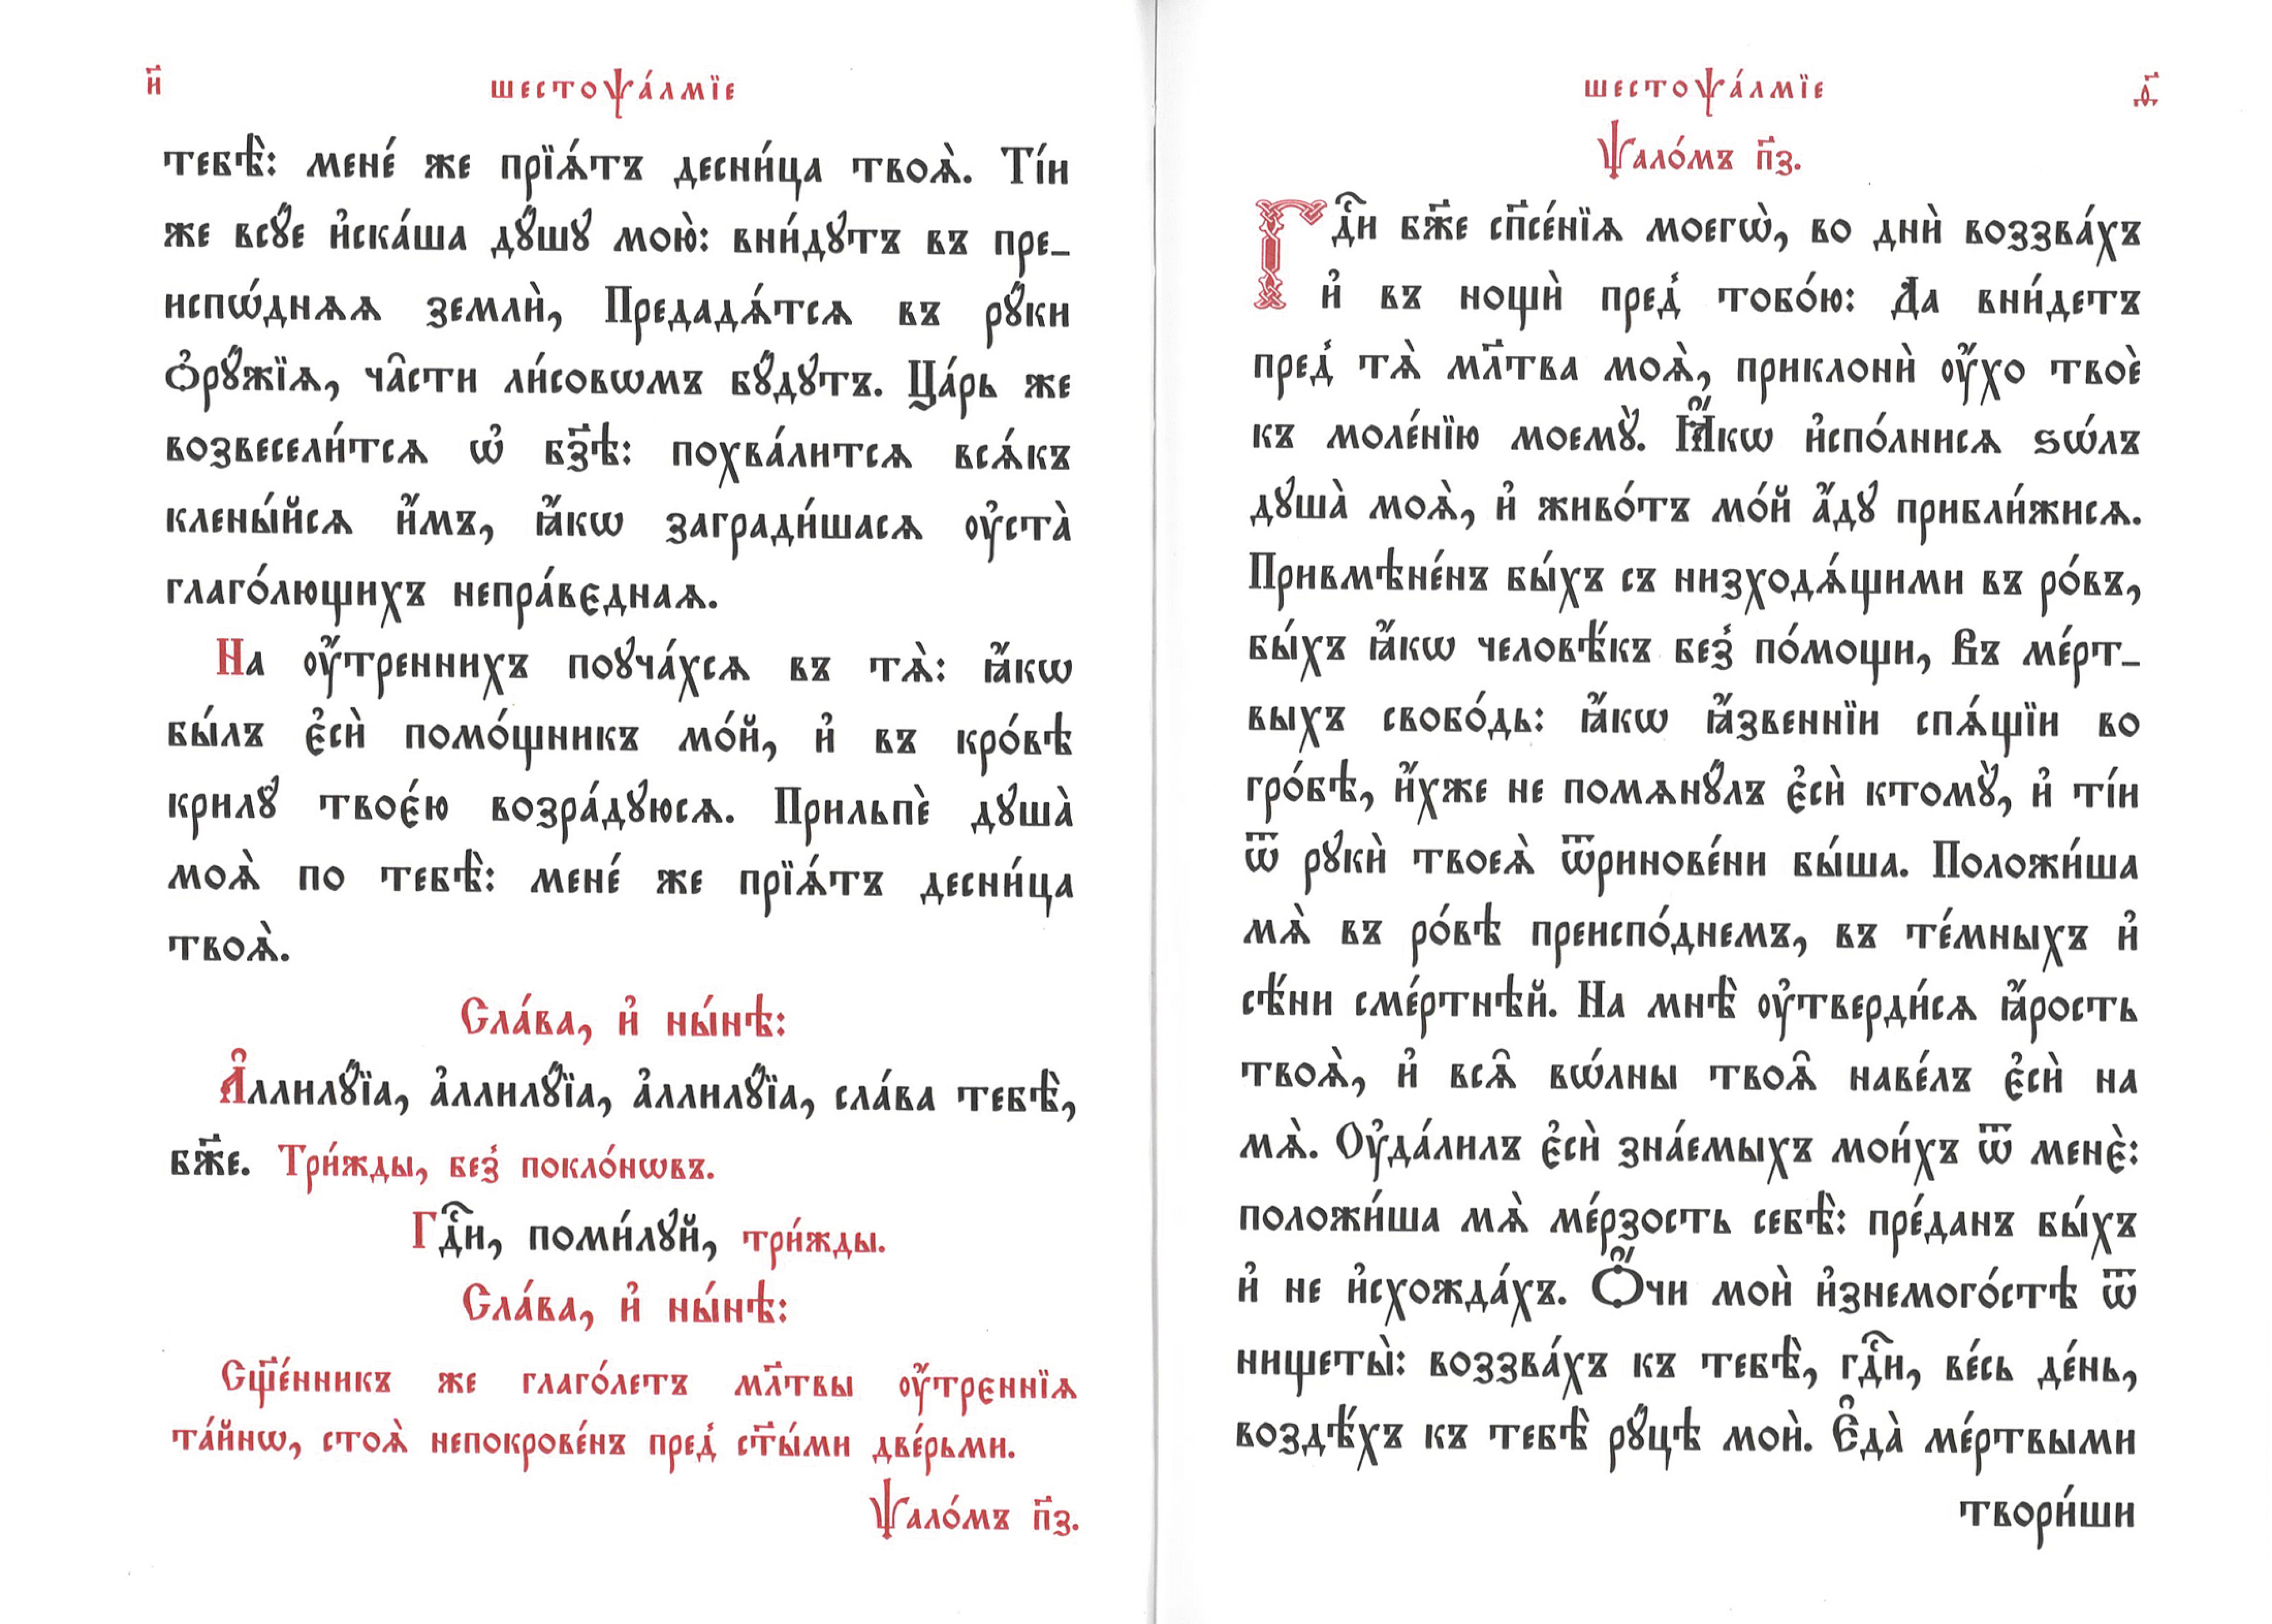 и҃
шестоѱа́лмїе
тебѣ̀: мене́ же прїѧ́тъ десни́ца твоѧ̀. Ті́и
же всꙋ́е и҆ска́ша дꙋ́шꙋ мою̀: вни́дꙋтъ въ пре_
испѡ́днѧѧ землѝ, Предадѧ́тсѧ въ рꙋ́ки
ѻ҆рꙋ́жїѧ, ча̑сти ли́совѡмъ бꙋ́дꙋтъ. Ца́рь же
возвесели́тсѧ ѡ҆ бз҃ѣ: похва́литсѧ всѧ́къ
клены́йсѧ и҆́мъ, ꙗ҆́кѡ загради́шасѧ ᲂу҆ста̀
глаго́лющихъ непра́вєднаѧ.
На ᲂу҆́треннихъ поꙋча́хсѧ въ тѧ̀: ꙗ҆́кѡ
бы́лъ є҆сѝ помо́щникъ мо́й, и҆ въ кро́вѣ
крилꙋ̀ твоє́ю возра́дꙋюсѧ. Прильпѐ дꙋша̀
моѧ̀ по тебѣ̀: мене́ же прїѧ́тъ десни́ца
твоѧ̀.
Сла́ва, и҆ ны́нѣ:
А҆ллилꙋ́їа, а҆ллилꙋ́їа, а҆ллилꙋ́їа, сла́ва тебѣ̀,
бж҃е. Три́жды, без̾ покло́нѡвъ.
Гдⷭ҇и, поми́лꙋй, три́жды.
Сла́ва, и҆ ны́нѣ:
Сщ҃е́нникъ же глаго́летъ мл҃твы ᲂу҆́трєннїѧ
та́йнѡ, стоѧ̀ непокрове́нъ пред̾ ст҃ы́ми две́рьми.
Ѱало́мъ п҃з.
шестоѱа́лмїе
ѳ҃
Ѱало́мъ п҃з.
Гдⷭ҇и бж҃е сп҃се́нїѧ моегѡ̀, во днѝ воззва́хъ
и҆ въ нощѝ пред̾ тобо́ю: Да вни́детъ
пред̾ тѧ̀ мл҃тва моѧ̀, приклонѝ ᲂу҆́хо твоѐ
къ моле́нїю моемꙋ̀. Ꙗ҆́кѡ и҆спо́лнисѧ ѕѡ́лъ
дꙋша̀ моѧ̀, и҆ живо́тъ мо́й а҆́дꙋ прибли́жисѧ.
Привмѣне́нъ бы́хъ съ низходѧ́щими въ ро́въ,
бы́хъ ꙗ҆́кѡ человѣ́къ без̾ по́мощи, Въ ме́рт_
выхъ свобо́дь: ꙗ҆́кѡ ꙗ҆́звеннїи спѧ́щїи во
гро́бѣ, и҆́хже не помѧнꙋ́лъ є҆сѝ ктомꙋ̀, и҆ ті́и
ѿ рꙋкѝ твоеѧ̀ ѿринове́ни бы́ша. Положи́ша
мѧ̀ въ ро́вѣ преиспо́днемъ, въ те́мныхъ и҆
сѣ́ни сме́ртнѣй. На мнѣ̀ ᲂу҆тверди́сѧ ꙗ҆́рость
твоѧ̀, и҆ всѧ̑ вѡ́лны твоѧ̑ наве́лъ є҆сѝ на
мѧ̀. Оу҆да́лилъ є҆сѝ зна́емыхъ мои́хъ ѿ менє̀:
положи́ша мѧ̀ ме́рзость себѣ̀: пре́данъ бы́хъ
и҆ не и҆схожда́хъ. Ѻ҆́чи моѝ и҆знемого́стѣ ѿ
нищеты̀: воззва́хъ къ тебѣ̀, гдⷭ҇и, ве́сь де́нь,
воздѣ́хъ къ тебѣ̀ рꙋ́цѣ моѝ. Є҆да̀ ме́ртвыми
твори́ши